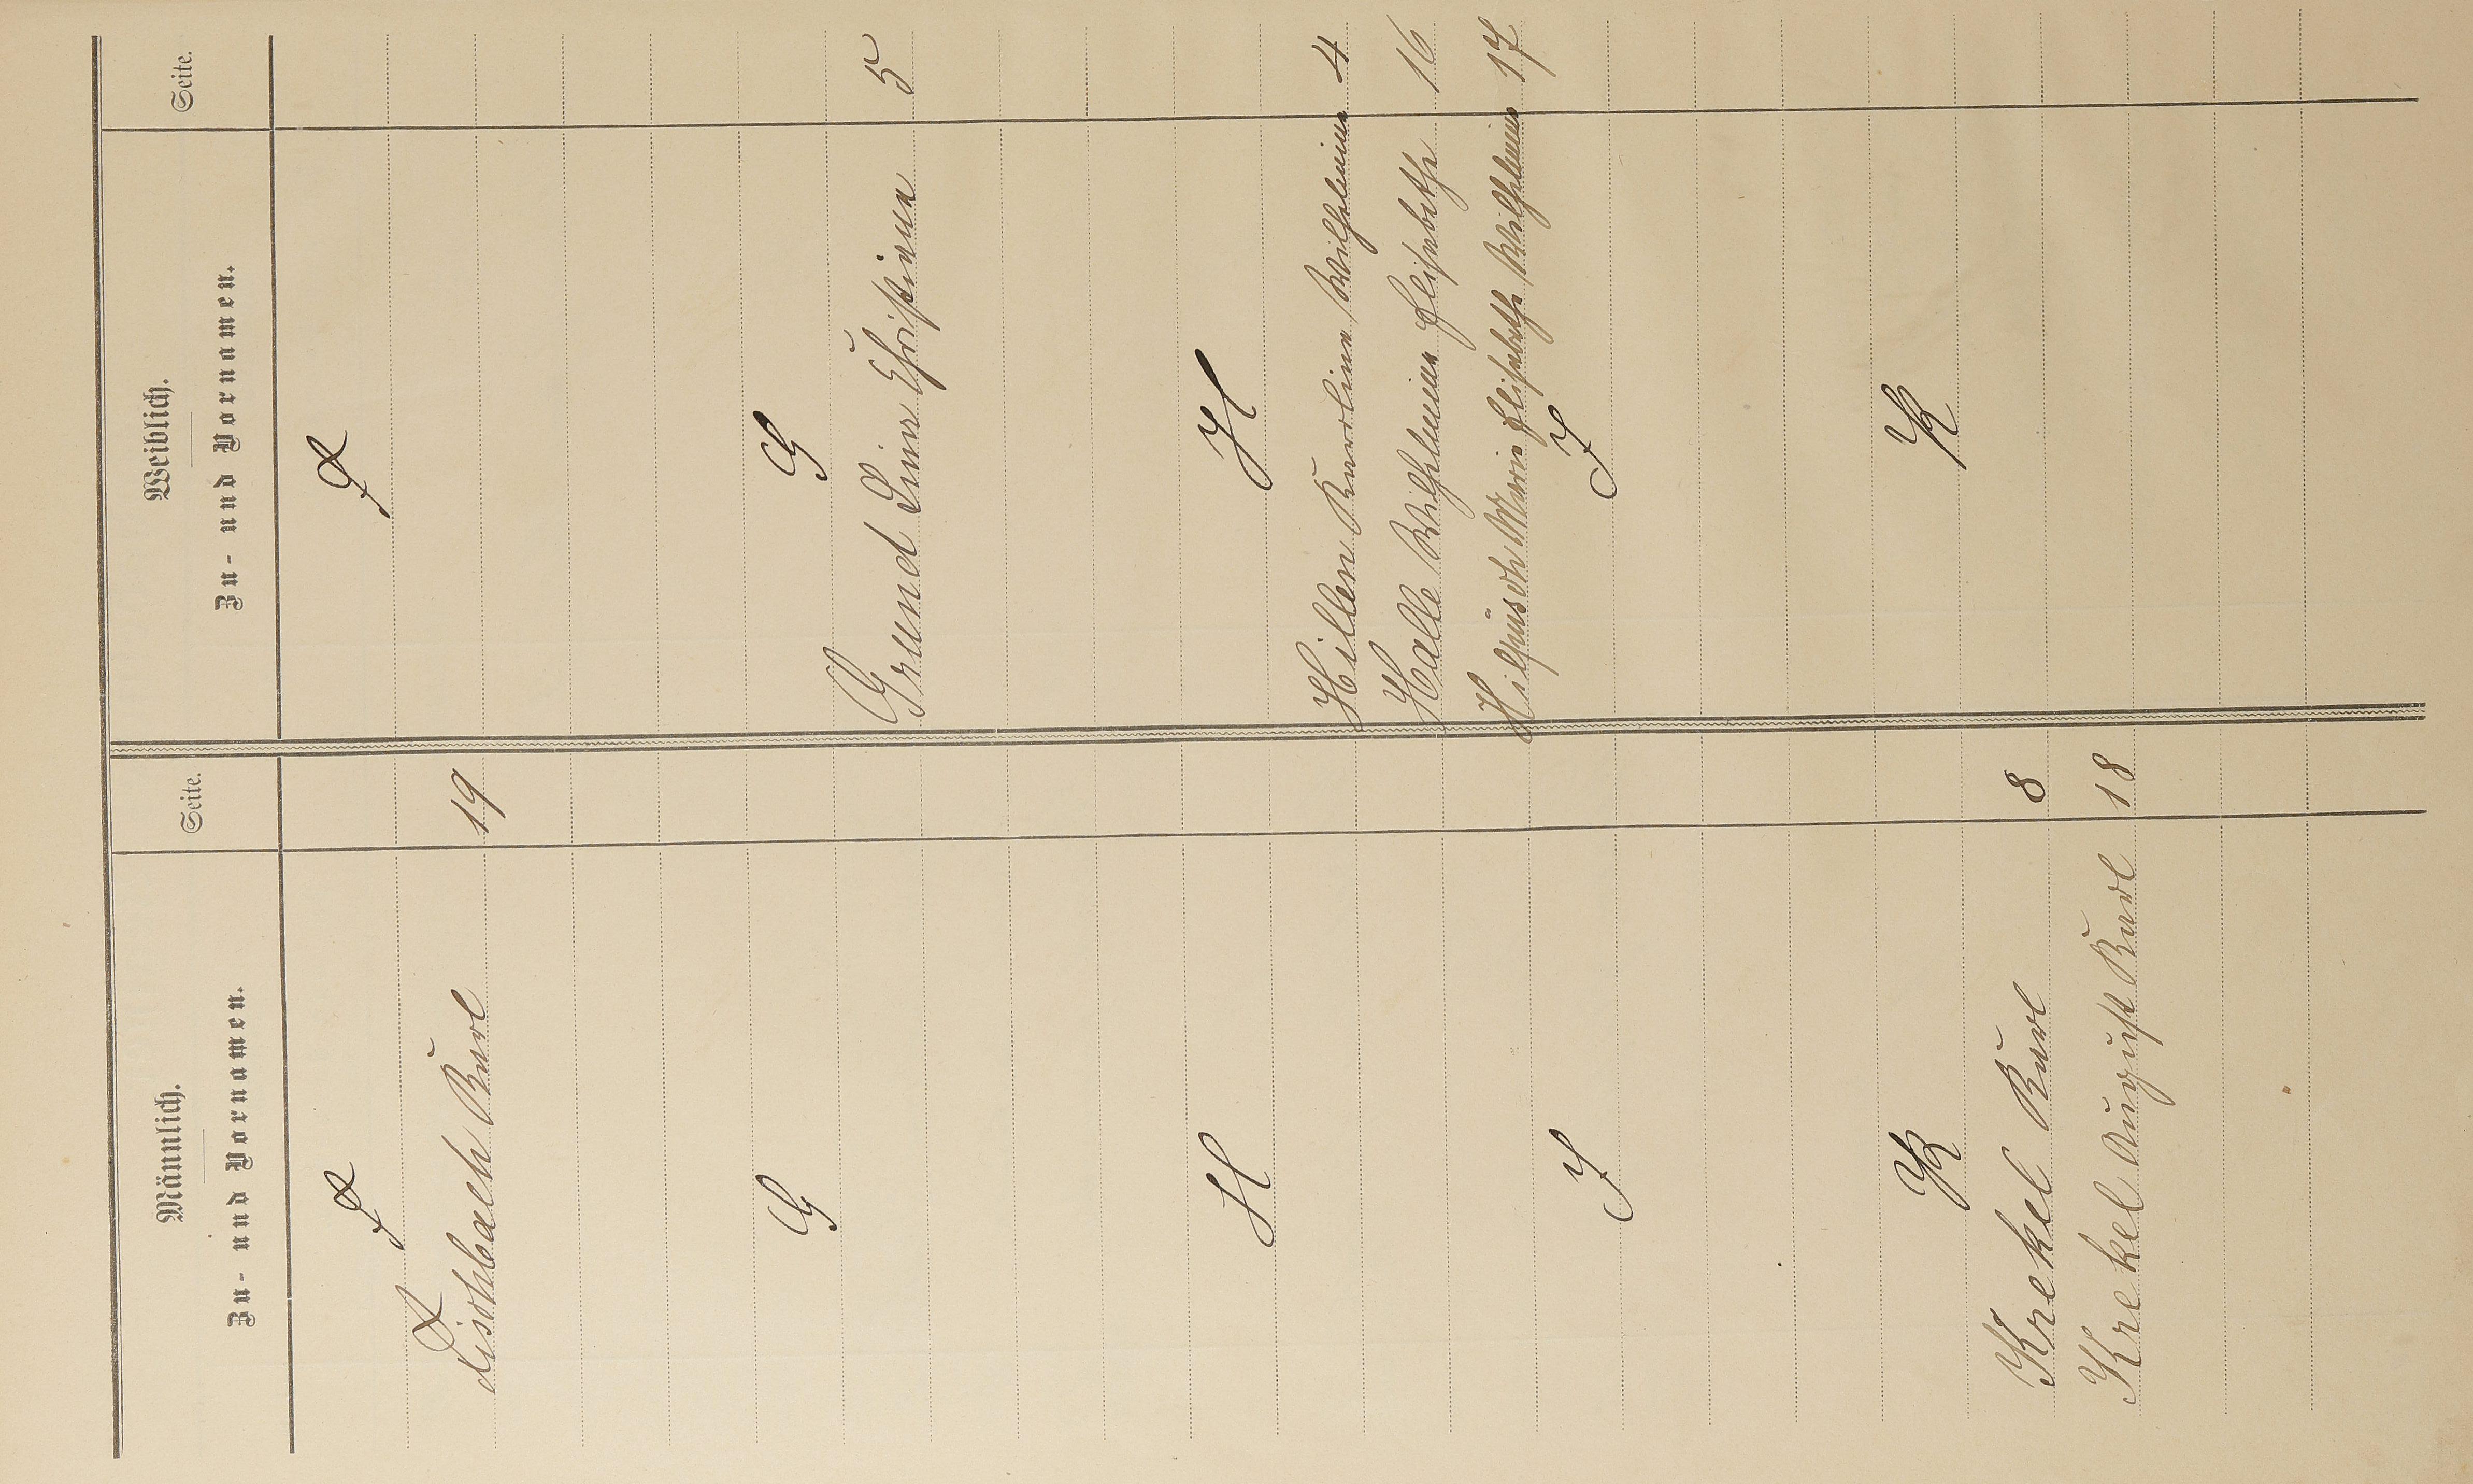 Männlich.
Zu- und Vornamen.
Seite.
Weiblich.
Zu- und Vornamen.
Seite.
F
F
Fischbach Karl 19
G
G
Grund Line Christine 5
H
H
Hillen Karoline Wilhelmine 4
Halle Wilhelmine Elisabethe 16
Marie Elisabethe Wilhelmine 17
J
J
K
K
Krekel Karl 8
Krekel August Karl 18